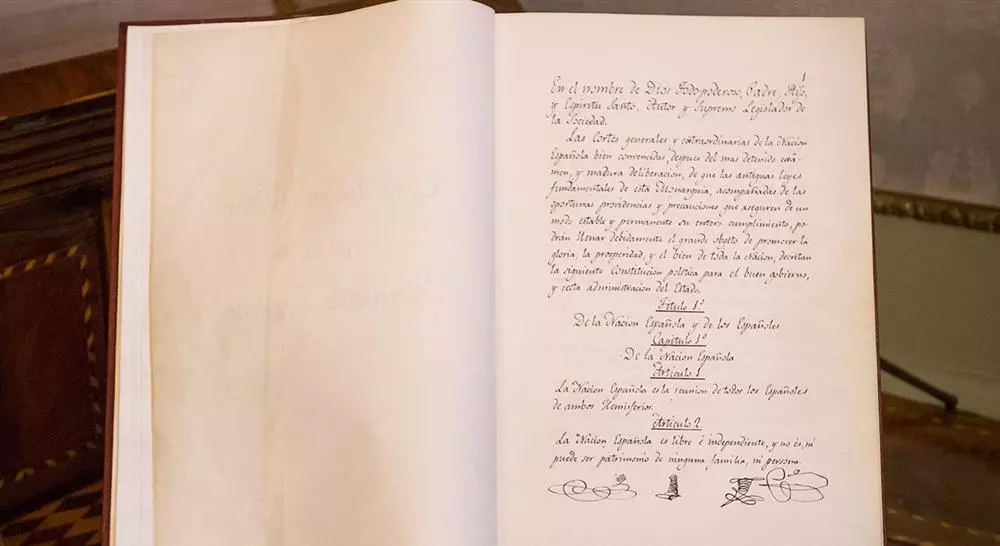 1
En el nombre de Dios Todopoderoso, Padre, Hijo,
y Espiritu Santo, Autor y Supremo Legislador de
la Sociedad.
Las Cortes generales y extraordinarias de la Nacion
Española bien convencidas, despues del mas detenido exâ-
men, y madura deliberacion, de que las antiguas leyes
fundamentales de esta Monarquia, acompañadas de las
oportunas providencias y precauciones que aseguren de un
modo estable y permanente su entero cumplimiento, po-
dran llenar debidamente el grande objeto de promover la
gloria, la prosperidad, y el bien de toda la Nacion, decretan
la siguiente Constitucion politica para el buen gobierno,
y recta administracion del Estado.
Titulo 1º
De la Nacion Española y de los Españoles
Capitulo 1º
De la Nacion Española.
Articulo 1.
La Nacion Española es la reunion de todos los Españoles
de ambos Hemisferios.
Articulo 2.
La Nacion Española es libre é independiente, y no es, ni
puede ser patrimonio de ninguna familia, ni persona.